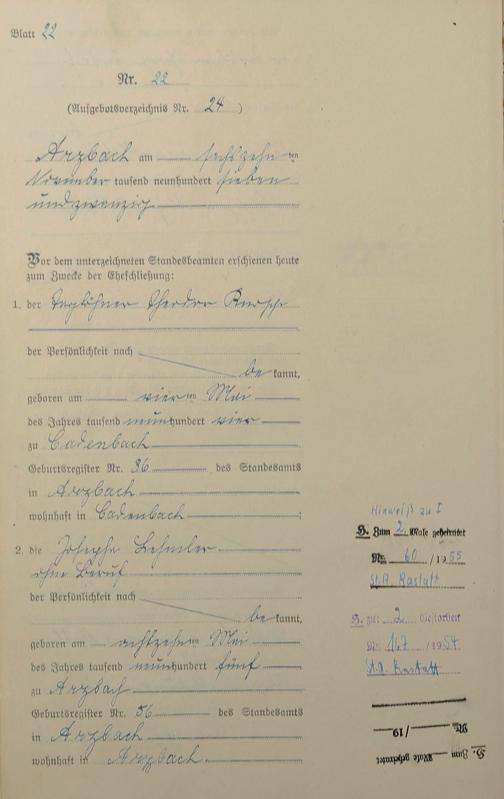 Blatt 22
Nr. 22
(Aufgebotsverzeichnis Nr. 24)
Arzbach am sechszehn ten
November tausend neunhundert sieben
undzwanzig
Vor dem unterzeichneten Standesbeamten erschienen heute
zum Zwecke der Eheschließung:
1. der Taglöhner Theodor
der Persönlichkeit nach
be kannt,
geboren am vier ten Mai
des Jahres tausend neunhundert vier
zu Cadenbach
Geburtsregister Nr. 36 des Standesamts
in Arzbach
wohnhaft in Cadenbach ;
2. die Josepha Lehmler
ohne Beruf
der Persönlichkeit nach
be kannt,
geboren am achtzehn ten Mai
des Jahres tausend neunhundert fünf
zu Arzbach
Geburtsregister Nr. 56 des Standesamts
in Arzbach
wohnhaft in Arzbach.
Hinweiß zu I
H. Zum 2. Male geheiratet
Nr. 60 / 1955
St.A. Rastatt
S. zu: 2 Gestorben
Nr. 167 / 1954
St.A. Rastatt
H. Zum Male geheiratet
Nr. /19